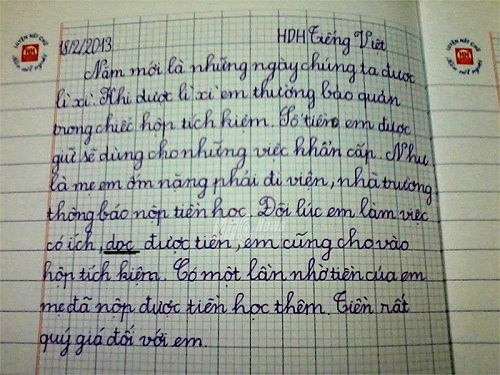 18/2/2013 HDH Tiếng Việt
Năm mới là những ngày chúng ta được
lì xì. Khi được lì xì em thường bảo quản
trong chiếc hộp tích kiệm. Số tiền em được
gửi sẽ dùng cho những việc khẩn cấp. Như
là mẹ em ốm nặng phải đi viện, nhà trường
thông báo nộp tiền học. Đôi lúc em làm việc
có ích, dọc được tiền, em cũng cho vào
hộp tích kiệm. Có một lần nhờ tiền của em
mẹ đã nộp được tiền học thêm. Tiền rất
quý giá đối với em.
LUYỆN NÉT CHỮ
RÈN NẾT NGƯỜI
LUYỆN NÉT CHỮ
RÈN NẾT NGƯỜI